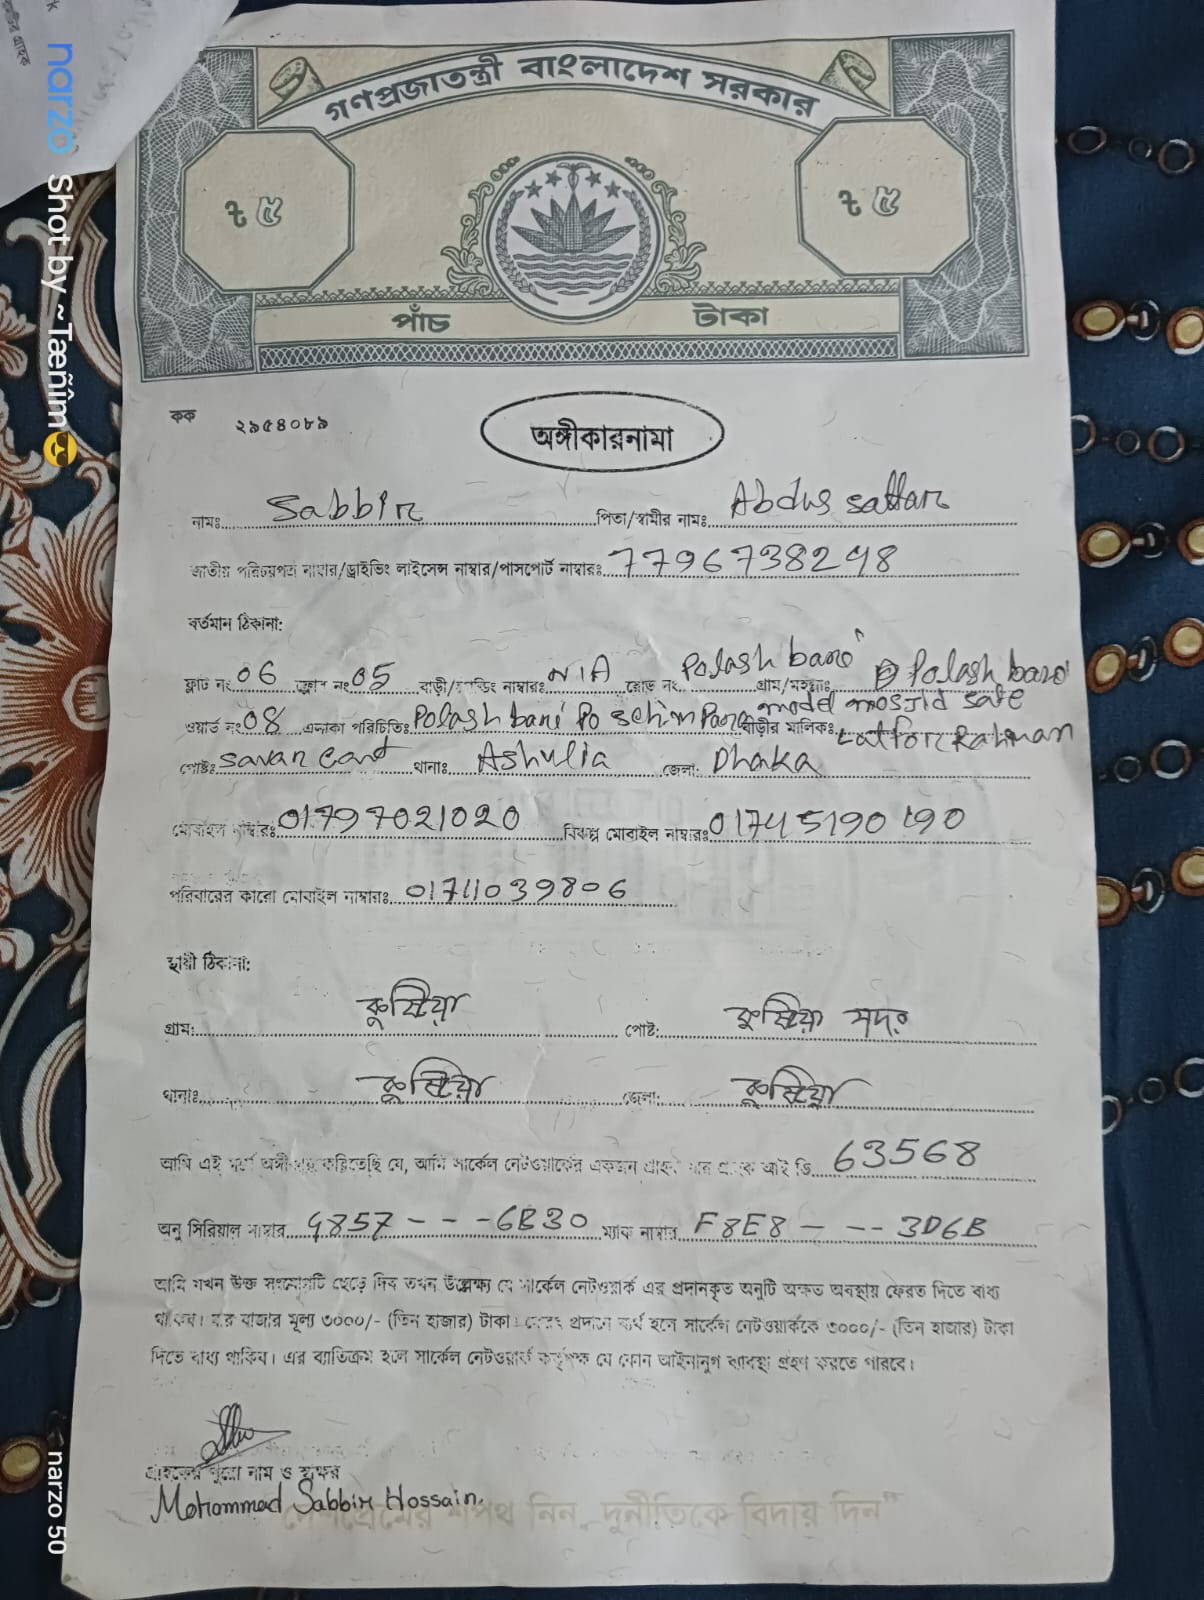 গণপ্রজাতন্ত্রী বাংলাদেশ সরকার
৳ ৫ ৳ ৫
পাঁচ টাকা
কক ২৯৫৪০৮৯
অঙ্গীকারনামা
নামঃ Sabbir পিতা/স্বামীর নামঃ Abdus sattar
জাতীয় পরিচয়পত্র নাম্বার/ড্রাইভিং লাইসেন্স নাম্বার/পাসপোর্ট নাম্বারঃ 7796738298
বর্তমান ঠিকানা:
ফ্লাট নং 06 ফ্লোর নং 05 বাড়ী/হোল্ডিং নাম্বারঃ N/A রোড নং Palash bari গ্রাম/মহল্লাঃ Palash bari
ওয়ার্ড নংঃ 08 এলাকা পরিচিতিঃ Polash bari Poschim Para model mosjid sate বাড়ীর মালিকঃ Latfor Rahman
পোষ্টঃ Savar Cant থানাঃ Ashulia জেলা: Dhaka
মোবাইল নাম্বারঃ 01797021020 বিকল্প মোবাইল নাম্বারঃ 01745190190
পরিবারের কারো মোবাইল নাম্বারঃ 01711039806
স্থায়ী ঠিকানা:
গ্রাম: কুষ্টিয়া পোষ্ট: কুষ্টিয়া সদর
থানাঃ কুষ্টিয়া জেলা: কুষ্টিয়া
আমি এই মর্মে অঙ্গীকার করিতেছি যে, আমি সার্কেল নেটওয়ার্কের একজন গ্রাহক যার গ্রাহক আই ডি 63568
অনু সিরিয়াল নাম্বার 4857 - - - 6B30 ম্যাক নাম্বার F8E8 - -- 3D6B
আমি যখন উক্ত সংযোগটি ছেড়ে দিব তখন উল্লেক্ষ্য যে সার্কেল নেটওয়ার্ক এর প্রদানকৃত অনুটি অক্ষত অবস্থায় ফেরত দিতে বাধ্য
থাকিব। যার বাজার মূল্য ৩০০০/- (তিন হাজার) টাকা। ফেরৎ প্রদানে ব্যর্থ হলে সার্কেল নেটওয়ার্ককে ৩০০০/- (তিন হাজার) টাকা
দিতে বাধ্য থাকিব। এর ব্যাতিক্রম হলে সার্কেল নেটওয়ার্ক কর্তৃপক্ষ যে কোন আইনানুগ ব্যবস্থা গ্রহণ করতে পারবে।
গ্রাহকের পুরো নাম ও স্বাক্ষর
Mohammad Sabbir Hossain.
দেশপ্রেমের শপথ নিন, দুর্নীতিকে বিদায় দিন"
narzo Shot by ~Tæñîm😎
narzo 50